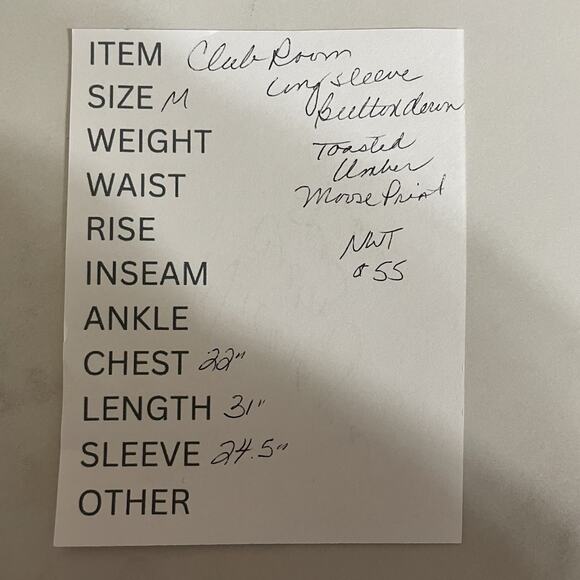 ITEM Club Room
long sleeve
SIZE M
Button down
WEIGHT
Toasted
Umber
WAIST
Moose Print
RISE
NWT
INSEAM
$55
ANKLE
CHEST 22"
LENGTH 31"
SLEEVE 24.5"
OTHER